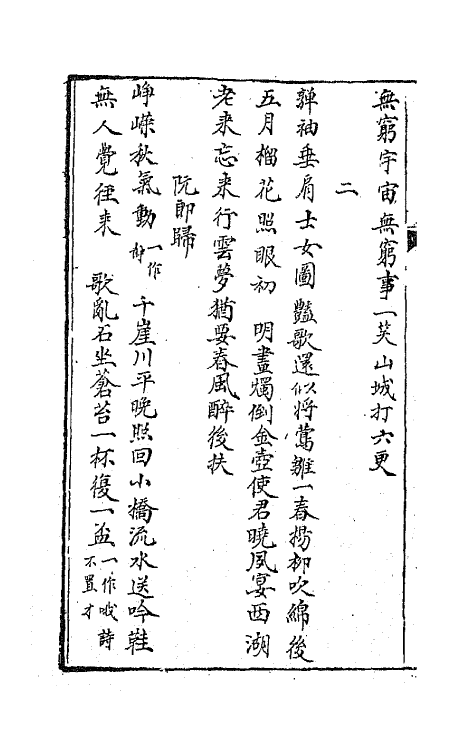 無窮宇宙無窮事一笑山城打六更
二
嚲袖垂肩士女圖豔歌還似將鶯雛一春楊柳吹綿後
五月榴花照眼初　明畫燭倒金壺使君曉風宴西湖
老來忘來行雲夢猶要春風醉後扶
阮郎歸
崢嶸秋氣動一作千崖川平晚照回小橋流水送吟鞋
無人覺徑來　歌亂石坐蒼苔一杯復一盃一作哦詩不置才